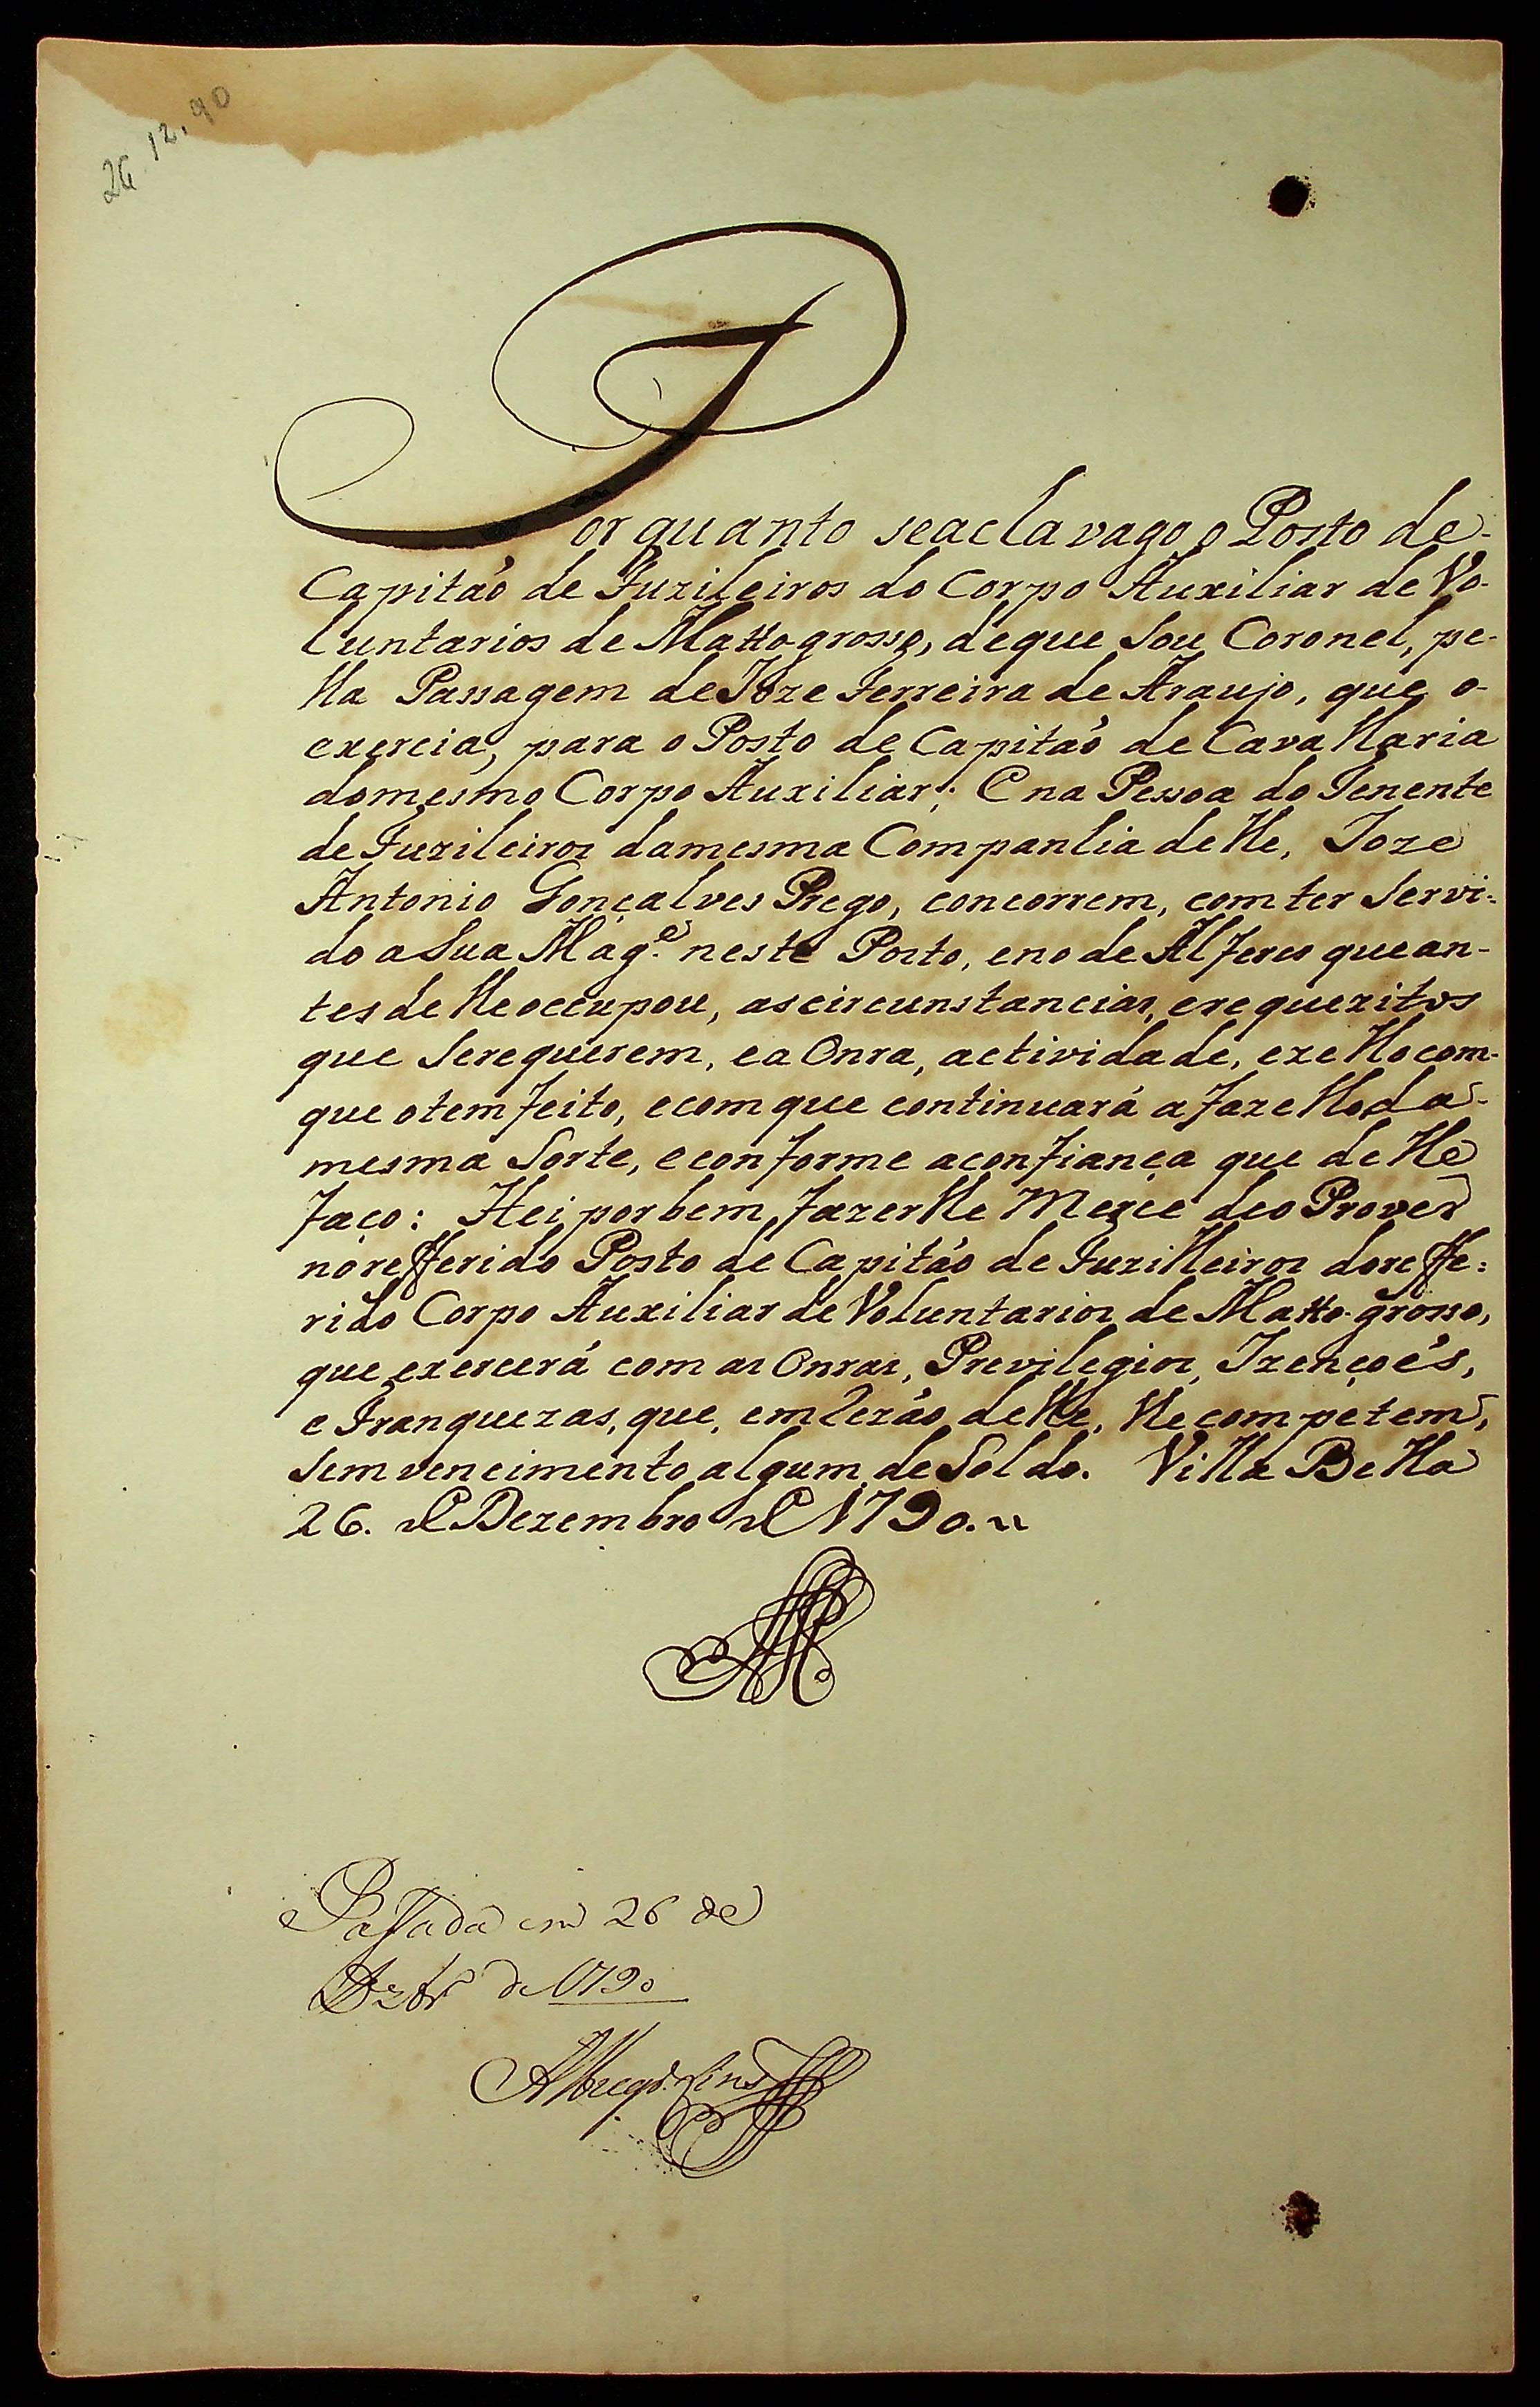 26.12.90
Porquanto seacha vago o Posto de
Capitaõ de Fuzileiros do Corpo Auxiliar de Vo-
luntarios de Mattogrosso, deque Sou Coronel, pe-
lla Passagem de Joze Ferreira de Araujo, que o
exercia, para o Posto de Capitaõ de Cavallaria
domesmo Corpo Auxiliar; E na Pessoa do Tenente
de Fuzileiros damesma Companhia delle, Joze
Antonio Gonçalves Prego, concorrem, comter Servi-
do aSua Mag.e neste Posto, eno de Alferes quean-
tes delle occupou, ascircunstancias, erequezitos
que Serequerem, ea Onra, actividade, ezello com-
que otem feito, ecomque continuará afazello da-
mesma Sorte, econforme aconfiança que delle
faço: Hei porbem, fazerlhe Merçe deo Prover
noreffferido Posto de Capitaõ de Fuzilleiros doreffe-
rido Corpo Auxiliar de Voluntarios de Matto-grosso,
que exercerá com as Onras, Previlegios, Izençoẽs,
e Franquezas, que, emRezaõ delle, lhe competem,
Sem vencimento algum de Soldo. Villa Bella
26. de Dezembro de 1790.
Passada em 26 de
Dezbr.o de 1790